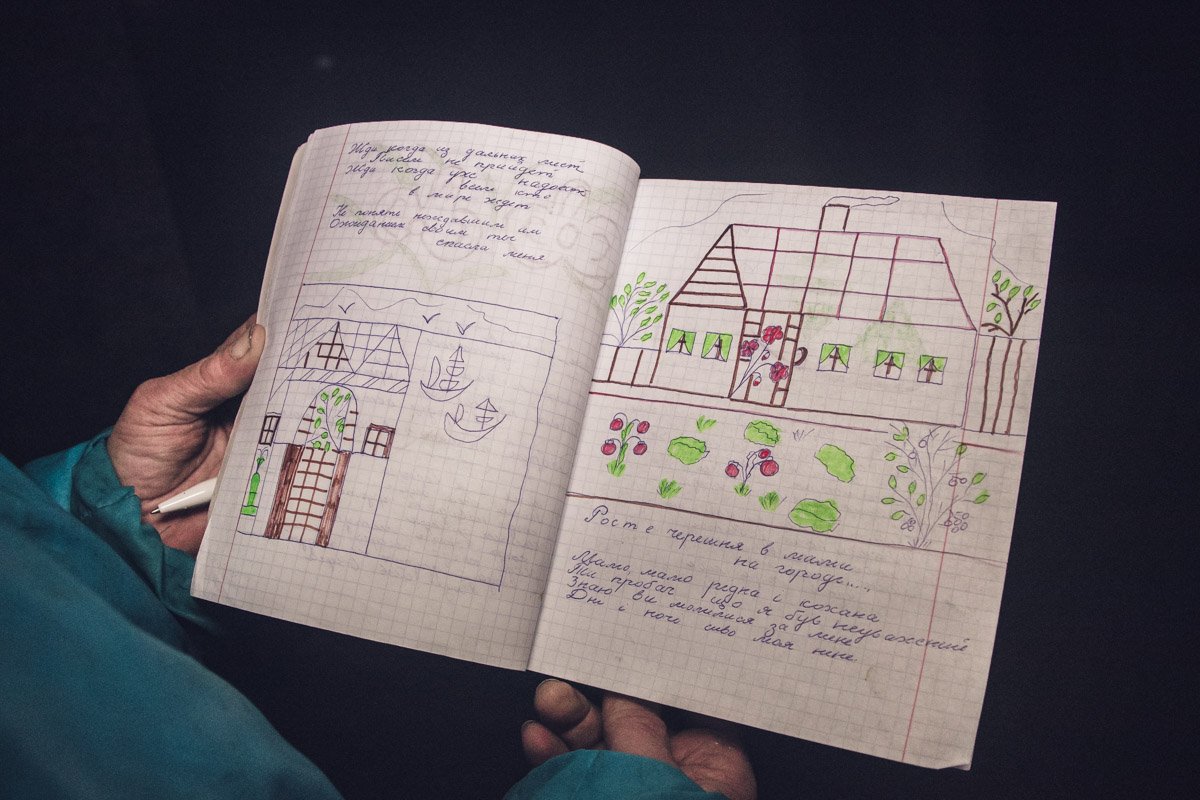 Жди когда из дальних мест
Писем не прийдет
Жди когда уже надоест
всем кто
в мире ждет
Не понять неждавшим им
Ожиданием своим ты
спасла меня
Росте черешня в мами
на городі....
Мамо, мамо рідна і кохана
Ти пробач що я був неуважений
Знаю Ви молилися за мене
Дні і ночі моя нене.